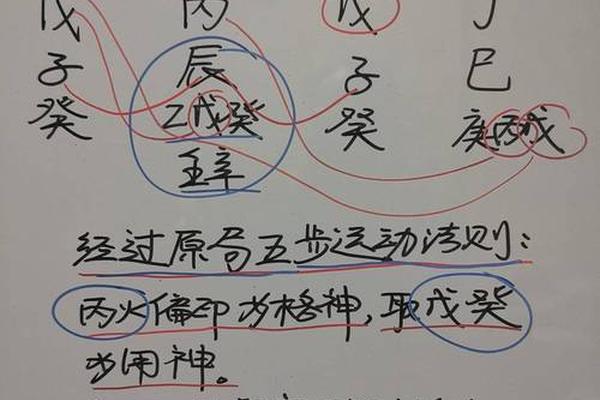 戊 丙 戊 丁
子 辰 子 巳
癸 乙戊癸 癸 庚丙戊
壬辛
经过原局五步运动法则:
丙火偏印为格神,取戊癸
为用神。